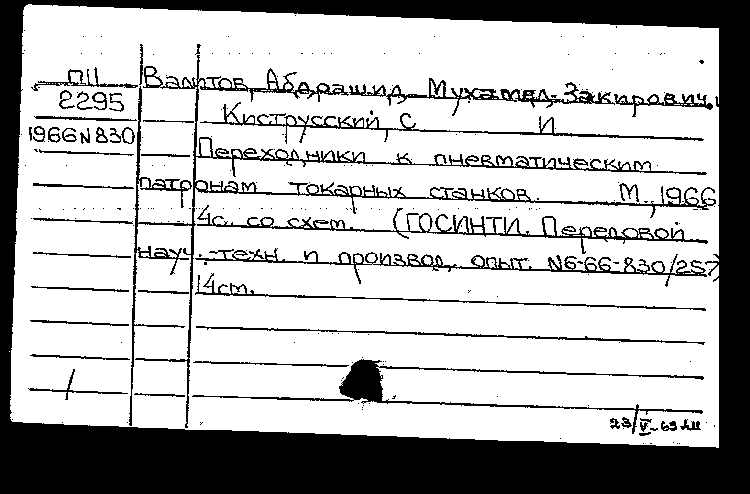 П11 Валитов, Абдрашид Мухамед-Закирович, и
2295 Киструсский, С И
1966 N 830 Переходники к пневматическим
патронам токарных станков. М., 1966
4с. со схем. (ГОСИНТИ. Передовой
науч.-техн. и производ. опыт. N6-66-830/257)
14ст.
23/V-69